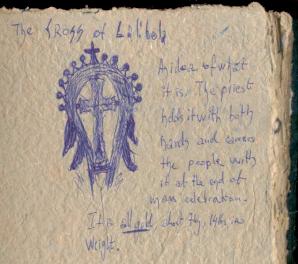 The CROSS of Lalibela
An idea of what
it is. The priest
holds it with both
hands and
the people with
it at the end of
mass celebration.
It is all gold about 7kg, in
weight.